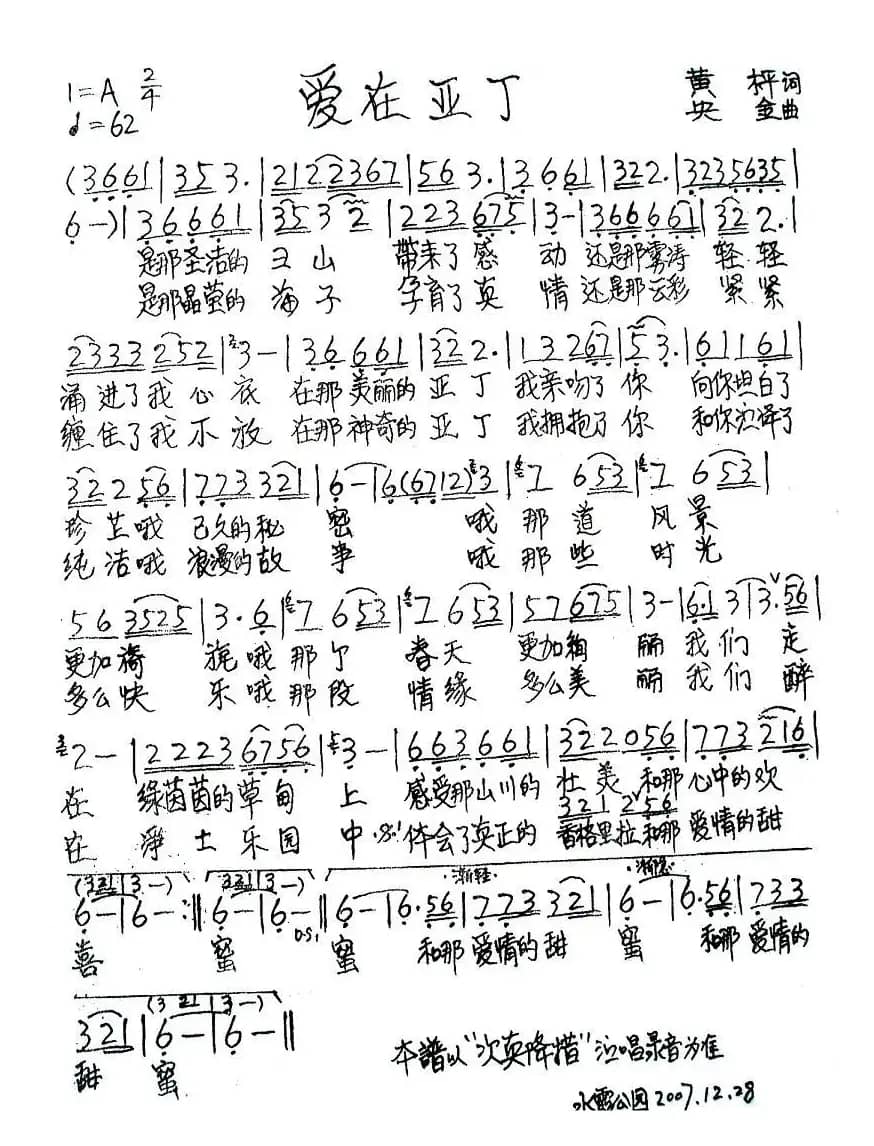 1=A 2/4
♩=62
爱在亚丁
黄枰词
央金曲
(3661|353.|2122367|563.|3661|322.|3235635|
6-)|36661|3532|223675|3-|366661|322.|
是那圣洁的玉山 带来了感动 还是那雾涛轻轻
是那晶莹的海子 孕育了真情 还是那云彩紧紧
2333252|3-|36661|322.|13267|53.|61161|
涌进了我心底 在那美丽的亚丁 我亲吻了你 向你坦白了
缠住了我不放 在那神奇的亚丁 我拥抱了你 和你演译了
32256|773321|6-|6(6712)3|7653|7653|
珍芷哦 已久的秘密 哦那道风景
纯洁哦 浪漫的故事 哦那些时光
563525|3.6|7653|7653|57675|3-|6.13|3.56|
更加旖旎哦那个春天 更加绚丽 我们走
多么快乐哦那段情缘 多么美丽 我们醉
2-|22236756|3-|663661|322056|773216|
在 绿茵茵的草甸上 感受那山川的壮美 和那心中的欢
321 2 56
在 净土乐园中 体会了真正的香格里拉 和那爱情的甜
(321|3-) (321|3-) 渐轻 渐慢
6-|6-:||6-|6-||6-|6.56|773321|6-|6.56|733
D.S.
喜 蜜 蜜 和那爱情的甜蜜 和那爱情的
(321|3-)
321|6-|6-||
甜蜜
本谱以“次真降措”演唱录音为准
水露公园2007.12.28